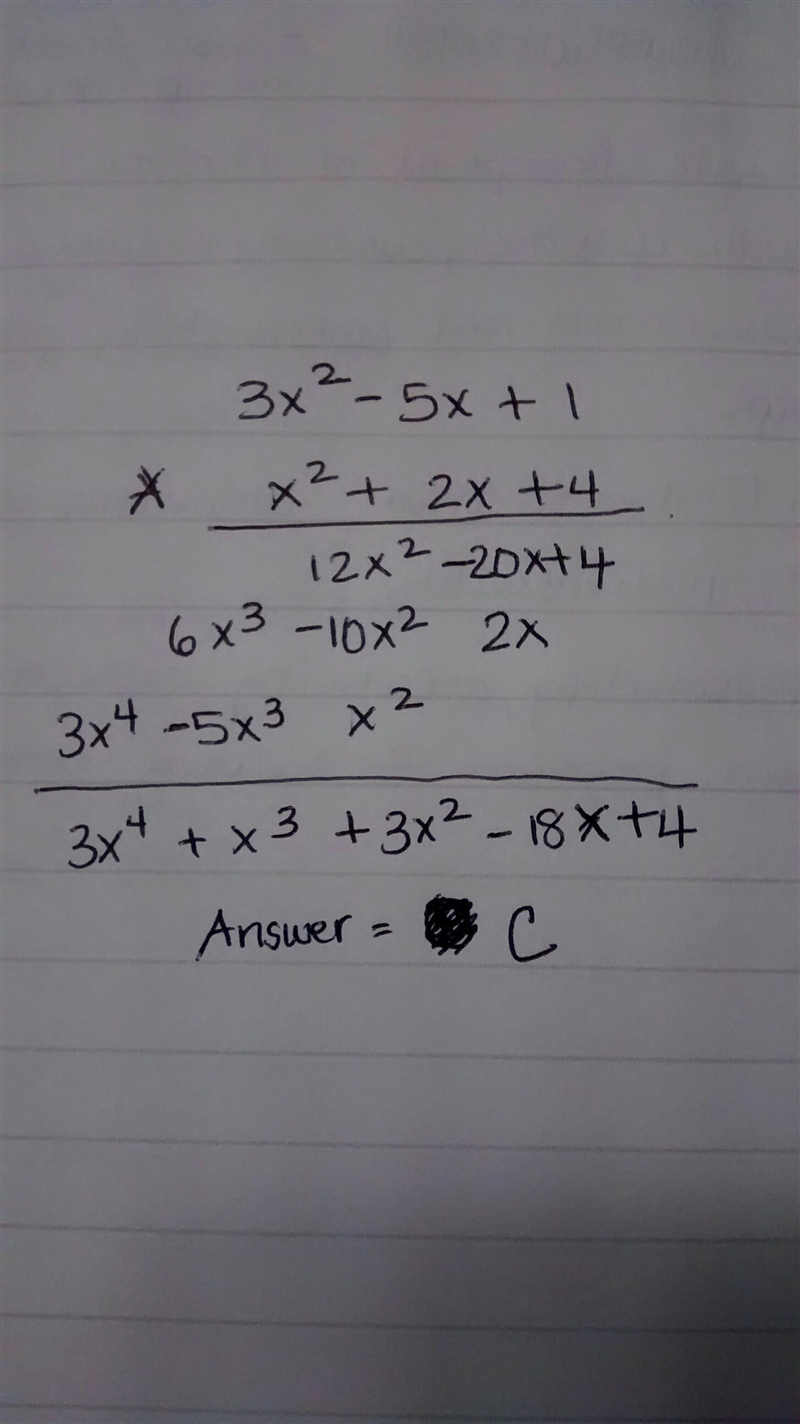 3x² - 5x + 1
* x² + 2x + 4
12x² -20x+4
6x³ -10x² 2x
3x⁴ -5x³ x²
3x⁴ + x³ +3x² - 18x+4
Answer = C